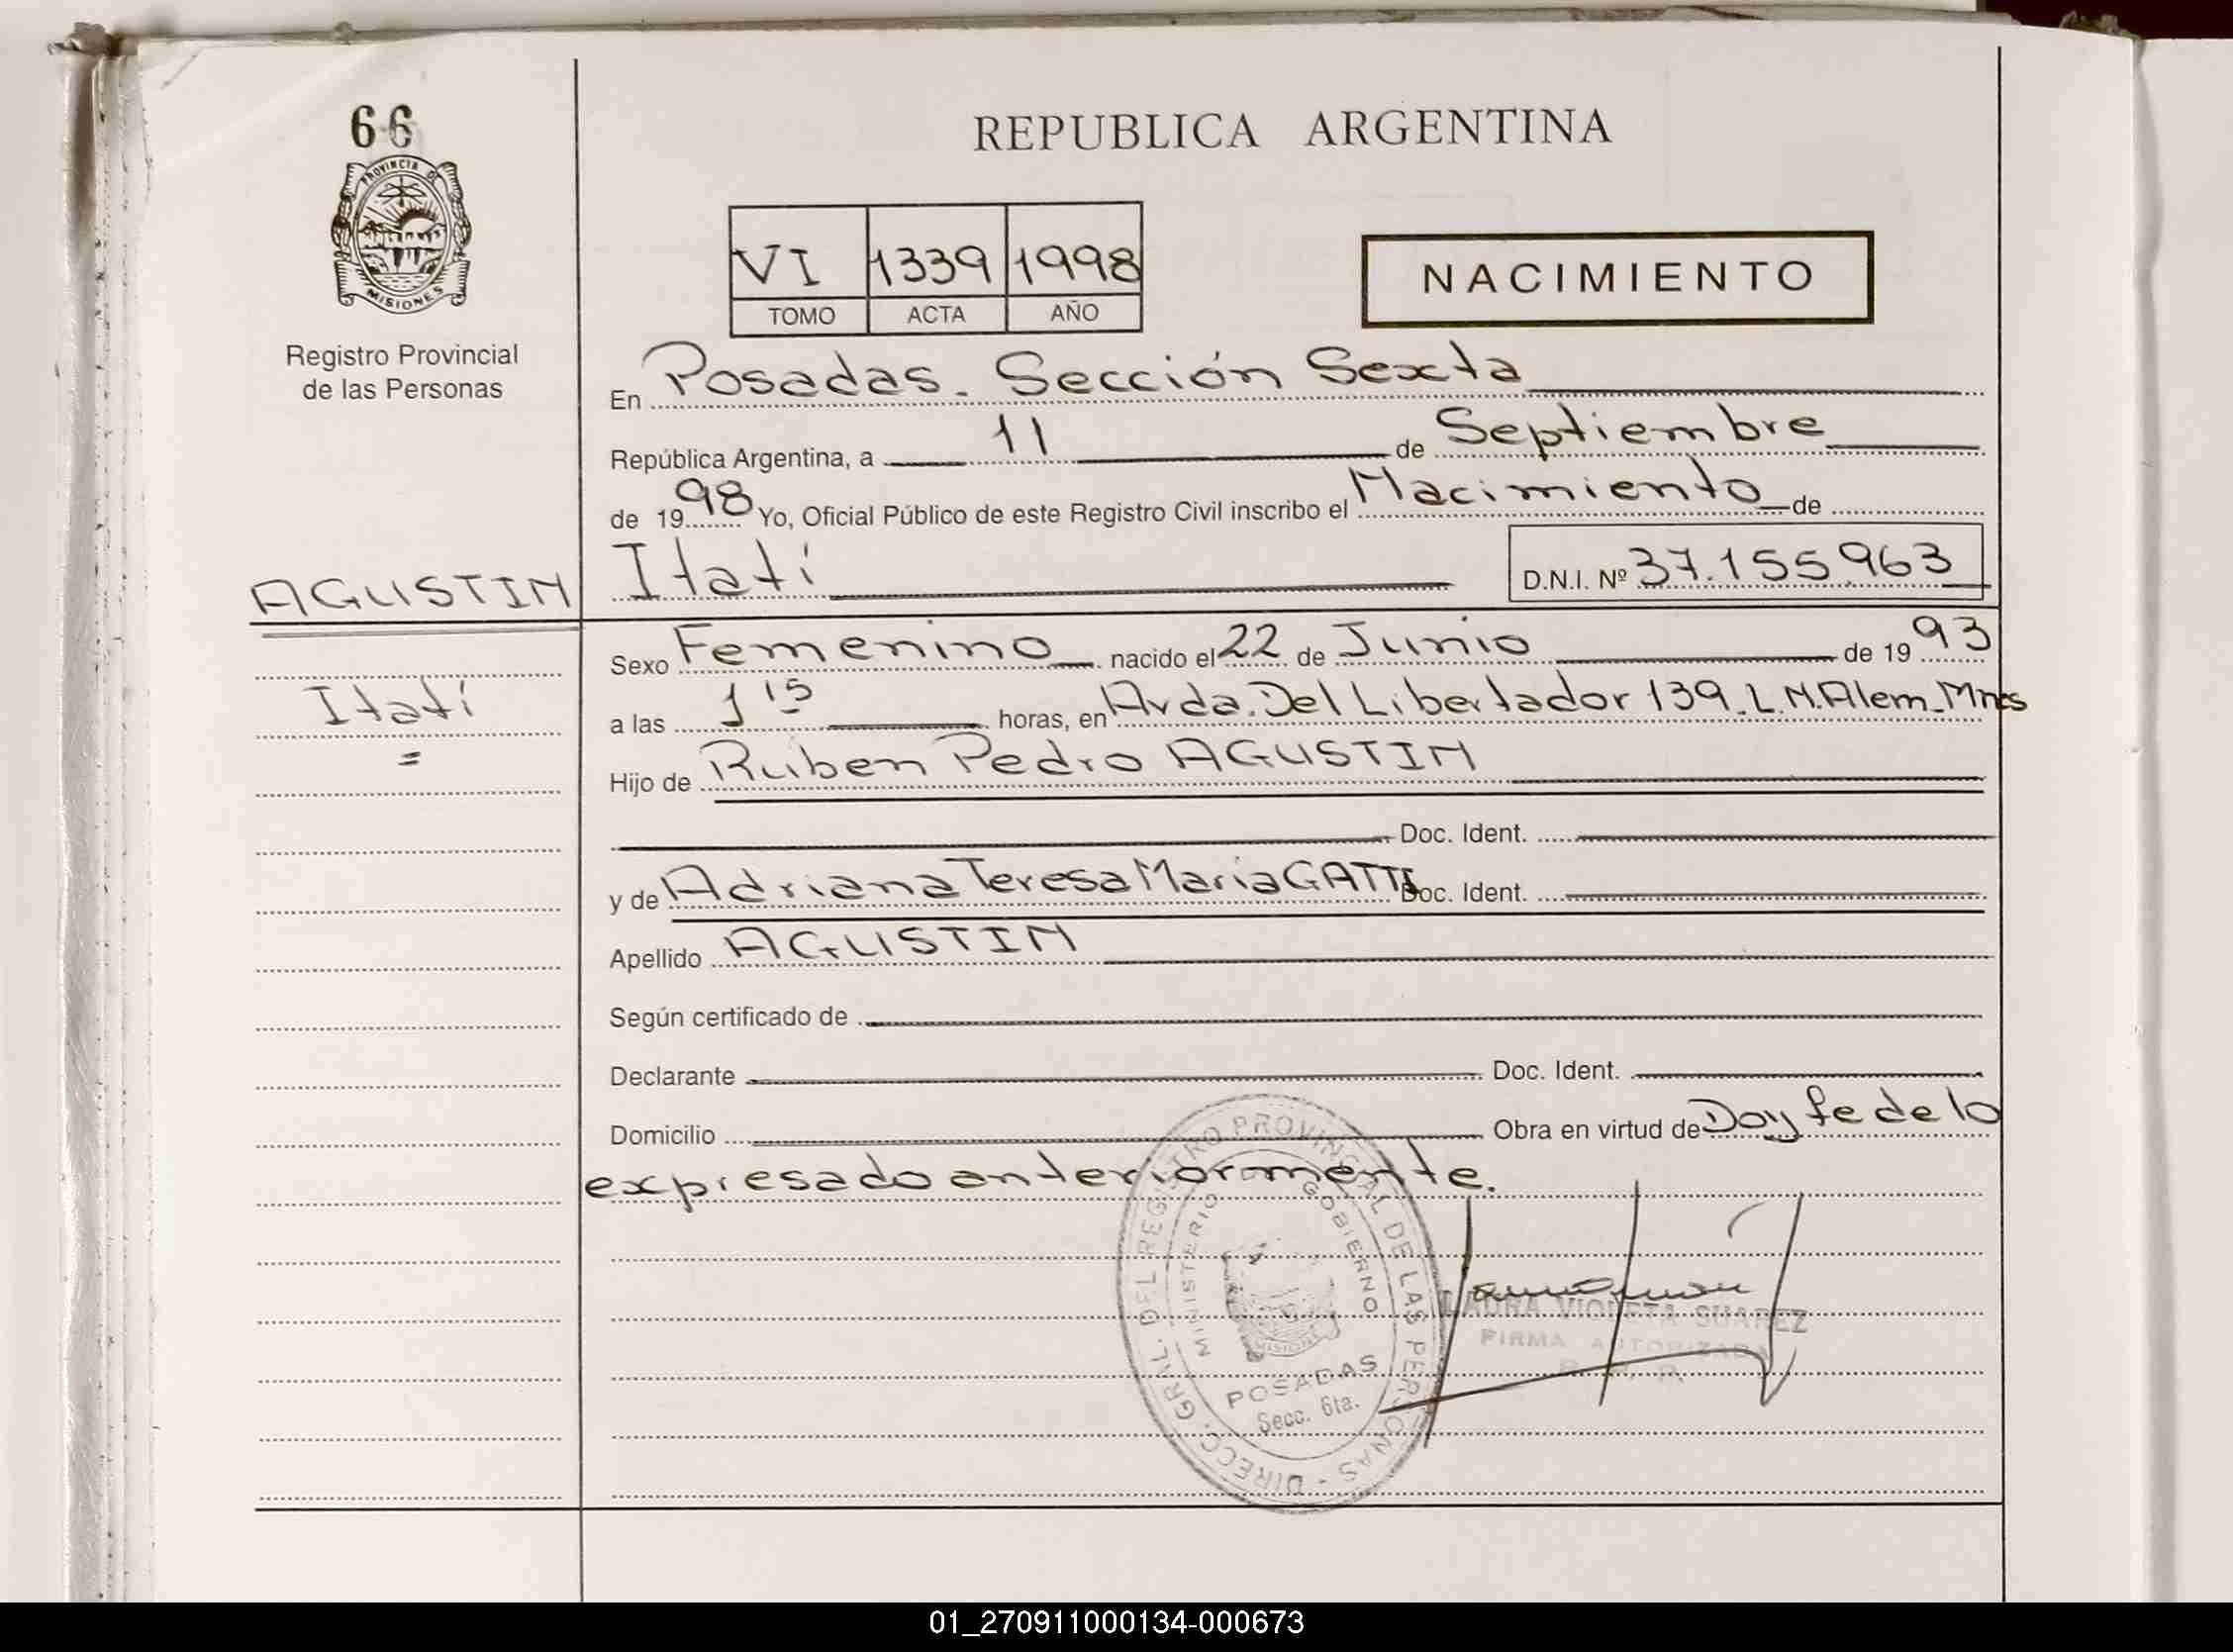 66
PROVINCIA DE
MISIONES
Registro Provincial
de las Personas
REPUBLICA ARGENTINA
VI 1339 1998
TOMO ACTA AÑO
NACIMIENTO
En Posadas. Sección Sexta
República Argentina, a 11 de Septiembre
de 1998 Yo, Oficial Público de este Registro Civil inscribo el Nacimiento de
AGUSTIN Itatí D.N.I. Nº 37.155.963
Sexo Femenino nacido el 22 de Junio de 1993
Itatí
a las 1 15 horas, en Avda. Del Libertador 139. L.N.Alem. Mnes
Hijo de Rúben Pedro AGUSTIN
Doc. Ident.
y de Adriana Teresa María GATTI Doc. Ident.
Apellido AGUSTIN
Según certificado de
Declarante Doc. Ident.
Domicilio Obra en virtud de Doy fe de lo
expresado anteriormente.
DIRECC. GRAL. DEL REGISTRO PROVINCIAL DE LAS PERSONAS -
MINISTERIO GOBIERNO
MISIONES
POSADAS
Secc. 6ta.
LAURA VIOLETA SUAREZ
FIRMA AUTORIZADA
01_270911000134-000673